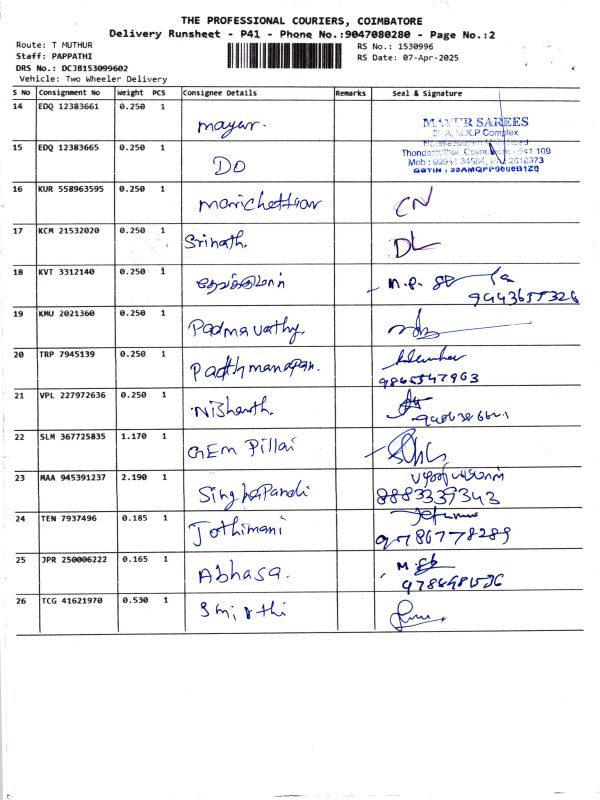 THE PROFESSIONAL COURIERS, COIMBATORE
Delivery Runsheet - P41 - Phone No.:9047080280 - Page No.:2
Route: T MUTHUR
Staff: PAPPATHI
DRS No.: DCJB153099602
Vehicle: Two Wheeler Delivery
RS No.: 1530996
RS Date: 07-Apr-2025
S No Consignment No Weight PCS Consignee Details Remarks Seal & Signature
14 EDQ 12383661 0.250 1 mayur.
MAYUR SAREES
M.K.P Complex
15 EDQ 12383665 0.250 1 DO
GSTIN :
16 KUR 558963595 0.250 1 CN
17 KCM 21532020 0.250 1 Srinath. DL
18 KVT 3312140 0.250 1 n.p.
19 KMU 2021360 0.250 1 Padmavathy.
20 TRP 7945139 0.250 1
9865547963
21 VPL 227972636 0.250 1 Nishanth.
22 SLM 367725835 1.170 1 GEm Pillai
23 MAA 945391237 2.190 1 SinghaPandi
8883339343
24 TEN 7937496 0.185 1 Jothimani
9786778289
25 JPR 250006222 0.165 1 Abhasa.
26 TCG 41621970 0.530 1